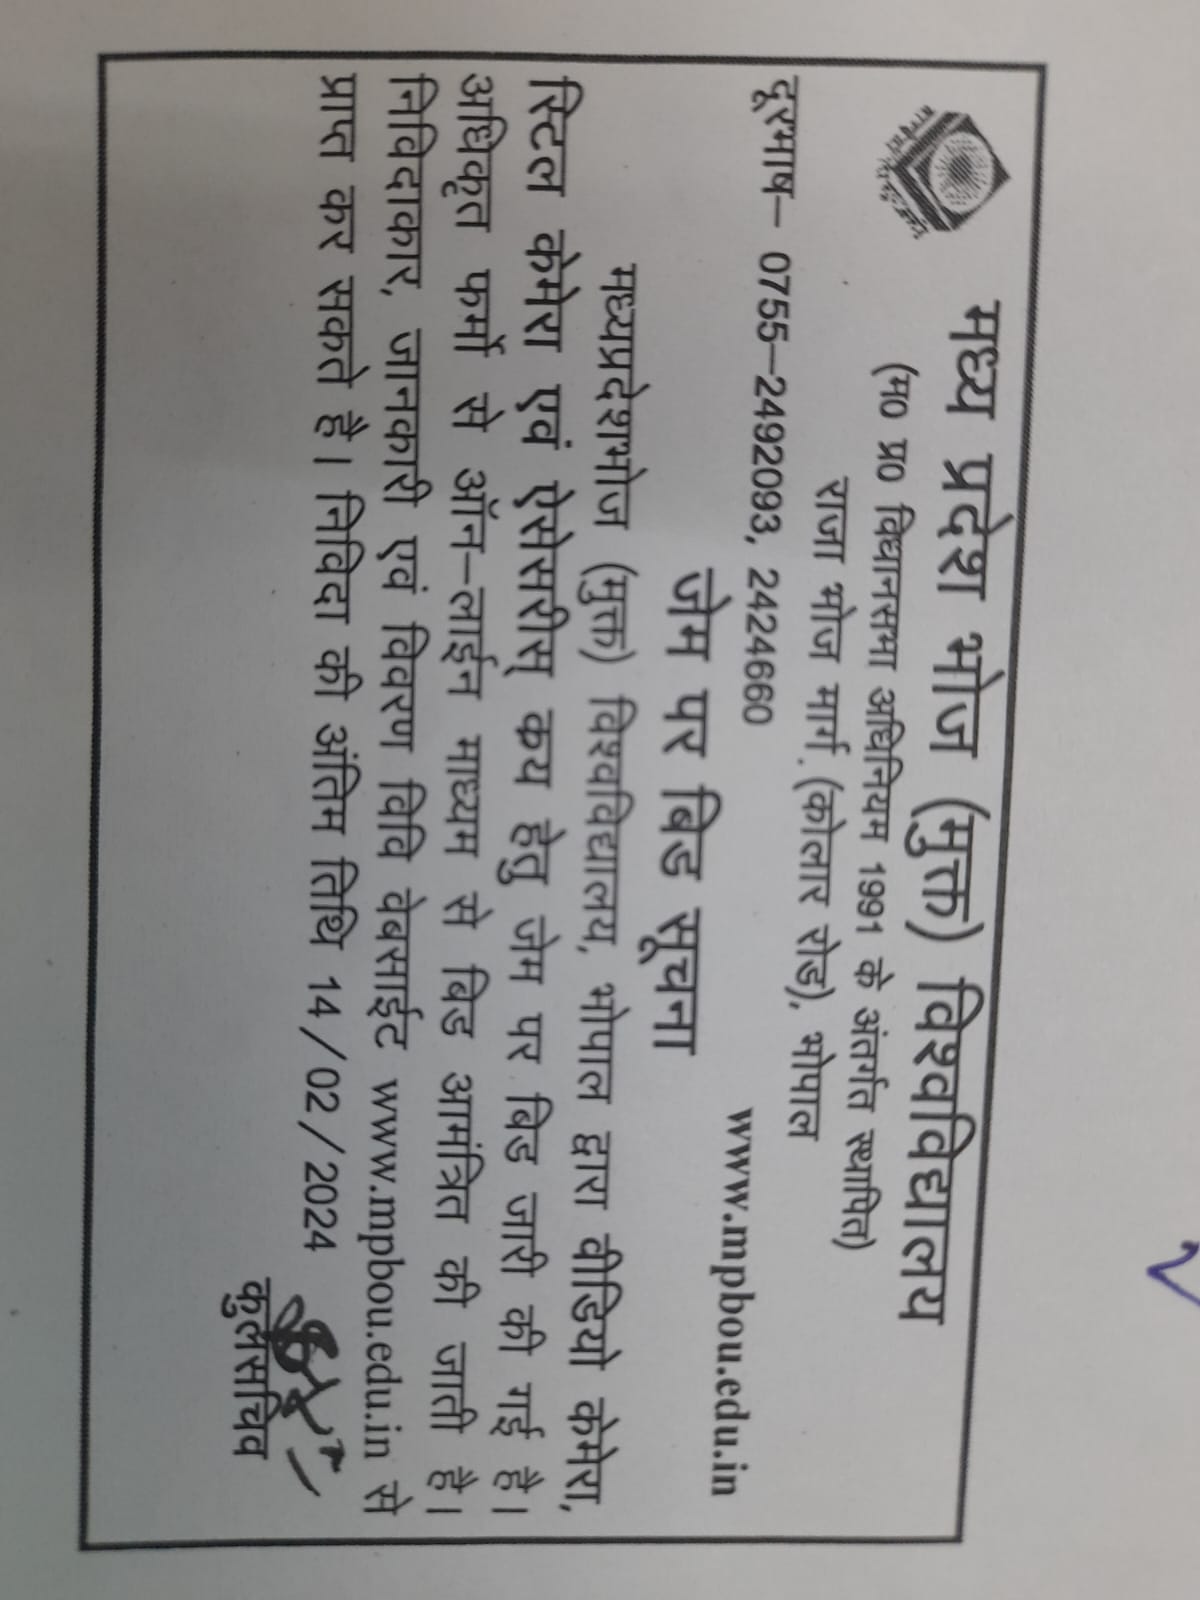 मध्य प्रदेश भोज (मुक्त) विश्वविद्यालय
(म0 प्र0 विधानसभा अधिनियम 1991 के अंतर्गत स्थापित)
राजा भोज मार्ग. (कोलार रोड), भोपाल
दूरभाष– 0755–2492093, 2424660 www.mpbou.edu.in
जेम पर बिड सूचना
मध्यप्रदेशभोज (मुक्त) विश्वविद्यालय, भोपाल द्वारा वीडियो केमेरा,
स्टिल केमेरा एवं ऐसेसरीस् कय हेतु जेम पर बिड जारी की गई है।
अधिकृत फर्मों से ऑन–लाईन माध्यम से बिड आमंत्रित की जाती है।
निविदाकार, जानकारी एवं विवरण विवि वेबसाईट www.mpbou.edu.in से
प्राप्त कर सकते है। निविदा की अंतिम तिथि 14/02/2024
कुलसचिव